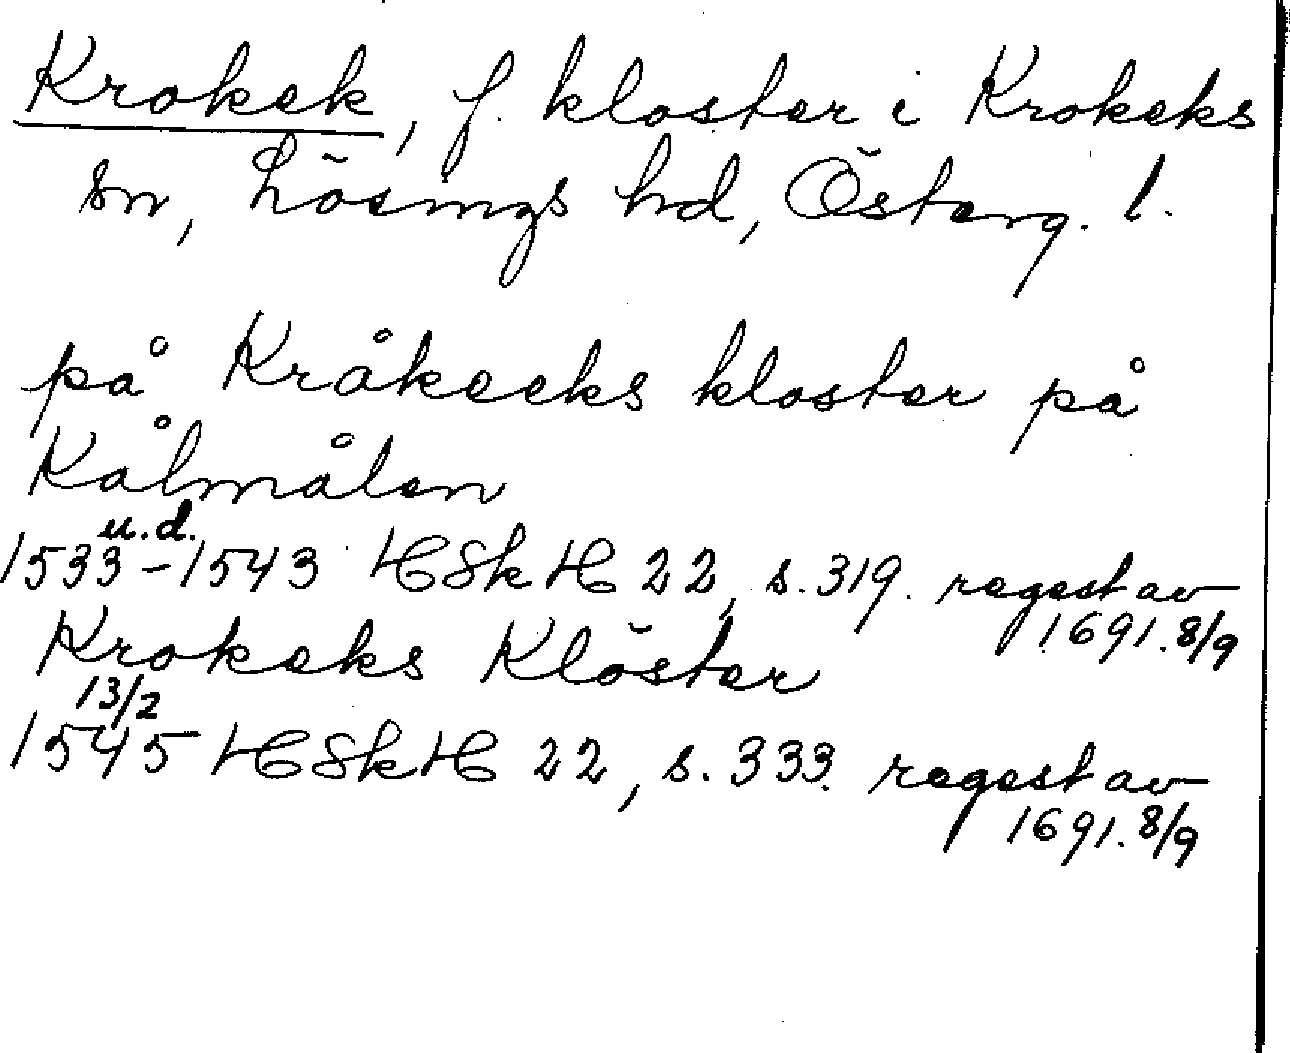 Krokek, f. kloster i Krokeks
sn, Lösings hd, Österg. l.
på Kråkeeks kloster på
Kålmålen
u.d.
1533-1543 HSkH 22, s. 319. regest av
1691.8/9
Krokeks Klöster
13/2
1545 HSkH 22, s. 333. regest av
1691.8/9